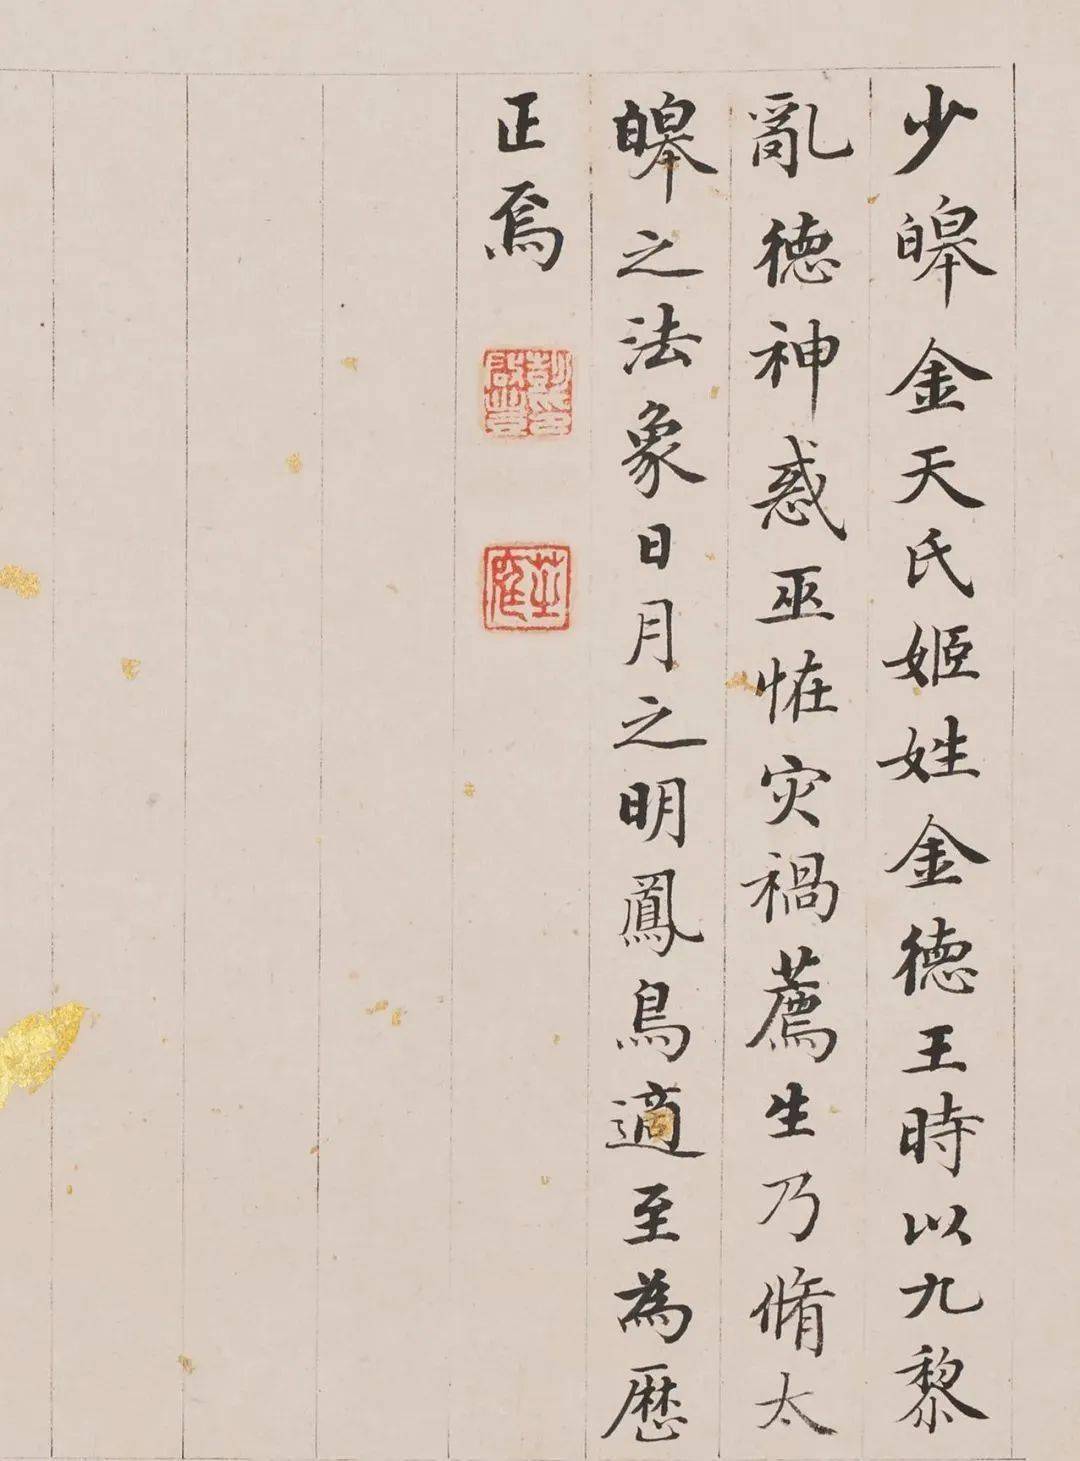 少皞金天氏姬姓金德王時以九黎
亂德神惑巫恠灾禍薦生乃脩太
皞之法象日月之明鳳鳥適至為歷
正焉
彭氏啟豐
芝庭